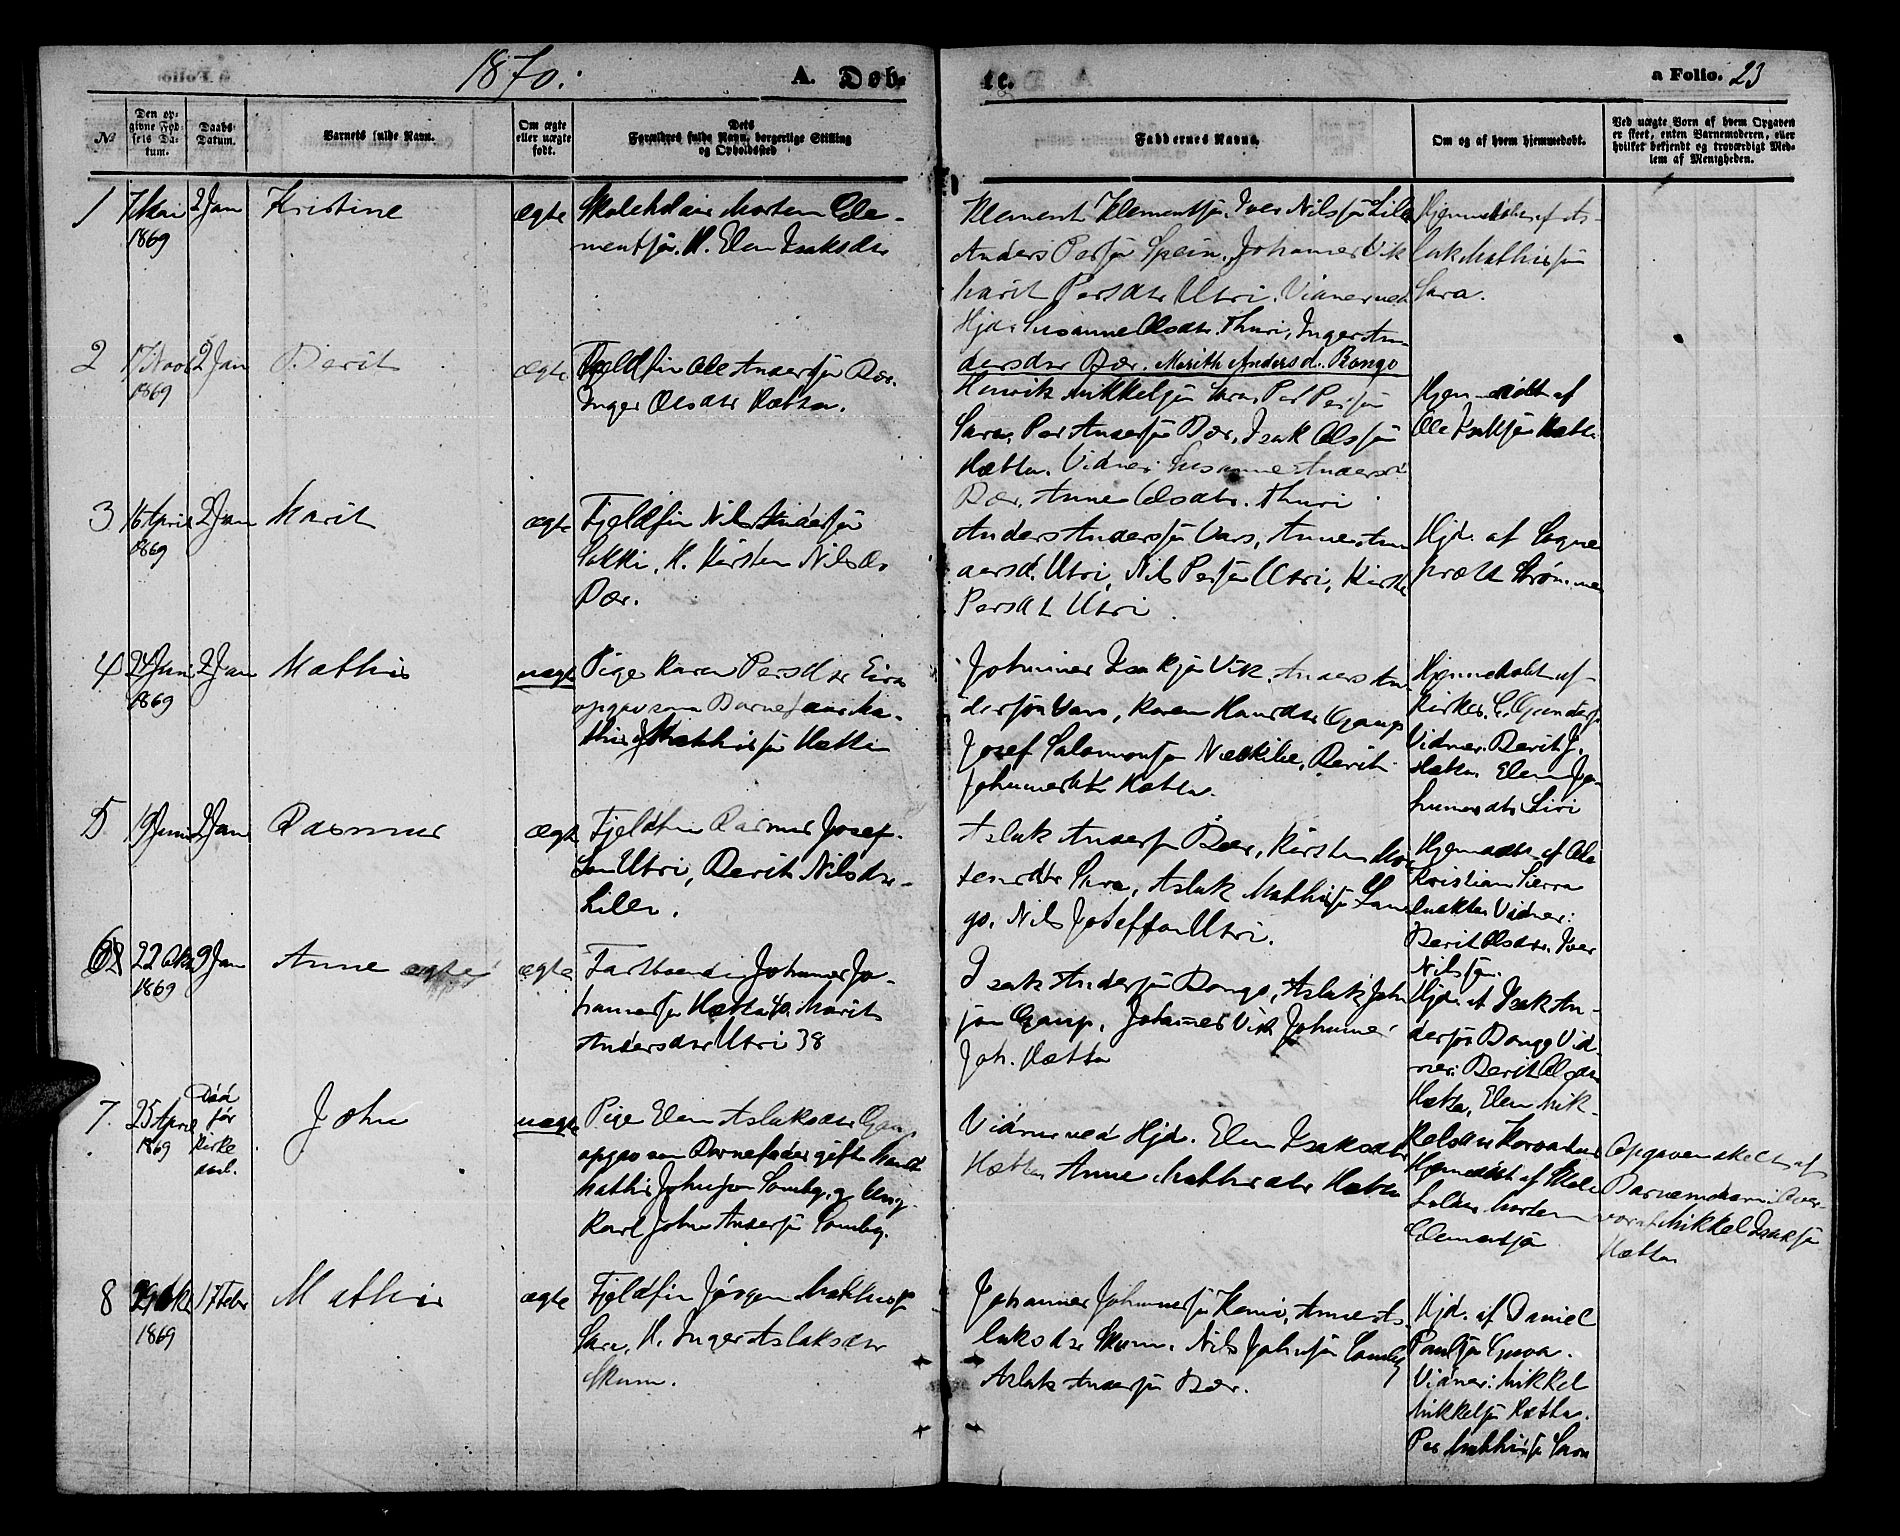 1870.
A. Døb-
te.
a Folio. 23
№
Den op-
givne Fød-
sels Da-
tum.
Daabs-
Datum.
Barnets fulde Navn.
Om ægte
eller uægte
født.
Dets
Forældres fulde Navn, borgerlige Stilling
og Opholdssted
Faddernes Navne.
Om og af hvem hjemmedøbt.
Ved uægte Børn af hvem Opgaven
er skeet, enten Barnemoderen, eller
hvilket bekjendt og troværdigt Med-
lem af Menigheden.
1
1869
2 Jan
Kristine
ægte
Morten Cle-
mentsøn. H. Elen Isaksdtr
Klement Klementsøn. Iver Nilssøn Lile
Anders Persøn Spein, Johannes Vik
Marit Persdtr Utsi. Vidner ved
Hjd. Susanne Olsdtr. Thuri, Inger An-
dersdtr Bær. Marith Andersd. Bongo
Hjemmedøbt af As-
lak Mathissøn
Sara.
2
17 Novb
1869
2 Jan
Berit
ægte
Fjeldfin Ole Anderssøn Bær.
Inger Olsdtr Hætta.
Henrik Mikkelsøn Sara, Per Persøn
Sara, Per Anderssøn Bær, Isak Olssøn
Hætta. Vidner: Susanne Andersd
Bær. Anne Olsdtr. Thuri
Hjemmedøbt af
Ole Isaksøn Hætta
3
16 April
1869
2 Jan
Marit
ægte
Fjeldfin Nils Anderssøn
Sokki. H. Kirsten Nilsd.
Bær.
Anders Anderssøn Vars, Anne An-
dersd. Utsi, Nils Persøn Utsi, Kirste
Persdt Utsi
Hjd. af Sogne
præst Strømme
4
24 Juni
1869
2 Jan
Mathis
uægte
Pige Karen Persdtr Eira
opgav som Barnefader Ma-
this Mathissøn Hætta
Johannes Isaksøn Vik, Anders An-
derssøn Vars, Karen Gaup
Josef Salamonsøn Näkkile, Berit
Johannesdtr Hætta.
Hjemmedøbt af
Kirkes. C. Gunders
Vidner. Berit J.
Hætta. Elen Jo-
hannesdtr Siri
5
19 Juni
2 Jan
Rasmus
ægte
Fjeldfin Rasmus Josef-
søn Utsi, Berit Nilsdtr
Lile.
Aslak Anderssøn Bær, Kirsten Mor
tensdtr Sara, Aslak Mathissøn Lan
go. Nils Josefsøn Utsi.
Hjemmedøbt af Ole
Kristian Sierra
Vidner:
Berit Olsdtr. Iver
Nilssøn.
6
22 Okt
1869
9 Jan
Anne
ægte
Fastboende Johannes Jo-
hannessøn Hætta 40. Marit
Andersdtr Utsi 38
Isak Anderssøn Bongo, Aslak John
søn Gaup. Johannes Vik Johannes
Joh. Hætta
Hjd. af Isak An-
derssøn Bongo Vid-
ner: Berit Olsdtr
Hætta, Elen Mik-
kelsdtr
7.
25 April
1869
Død
før
Kirke
John
uægte
Pige Elen Aslaksdtr Gaup
opgav som Barnefader gifte Mand
Mathis Johnsøn Somby, og Ung-
karl John Anderssøn Somby.
Vidner ved Hjd. Elen Isaksdtr
Hætta Anne Mathisdtr Hætta
Hjemmedøbt af Skole
holder Morten
Clementsøn
Opgaven skeet af
Barnemoderen i Over-
vær af Mikkel Isaksøn
Hætta
8
29 Okt
1869
17 Febr
Mathis
ægte
Fjeldfin Jørgen Mathissøn
Sara, H. Inger Aslaksdtr
Skum.
Johannes Johannessøn Kemi, Anne As-
laksdtr Skum. Nils Johnsøn Somby
Aslak Anderssøn Bær.
Hjd. af Daniel
Poulsøn Gjuva.
Vidner: Mikkel
Mikkelsøn Hætta.
Per Mathissøn Sara